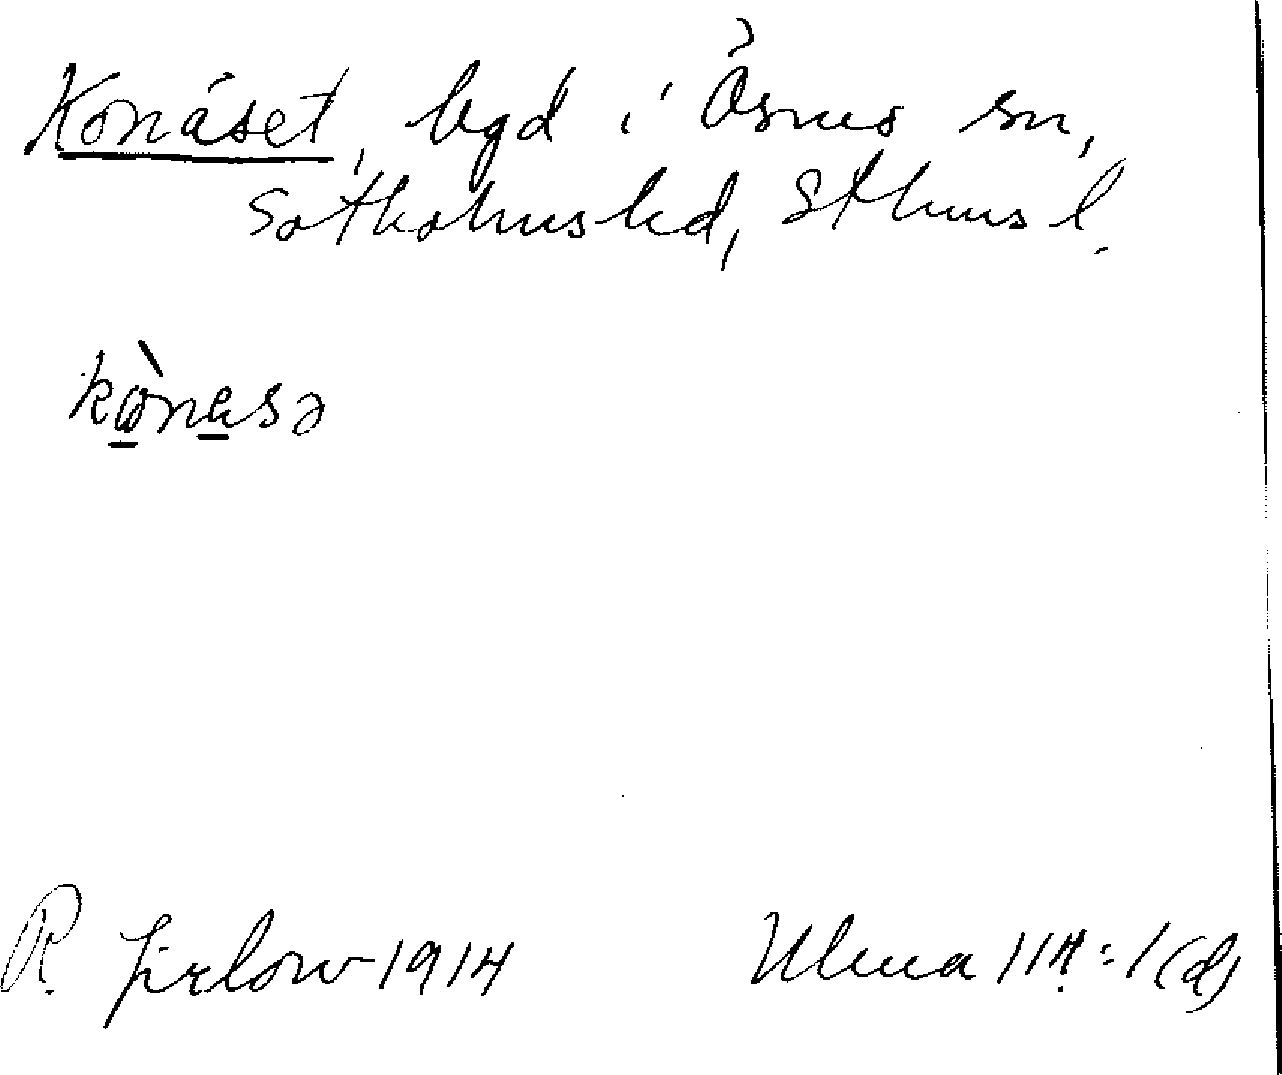 Konåset, bgd i Ösmo sn,
Sotholms hd, Sthms l.
kònasə
R. Jirlow 1914
Ulma 114:1(d)